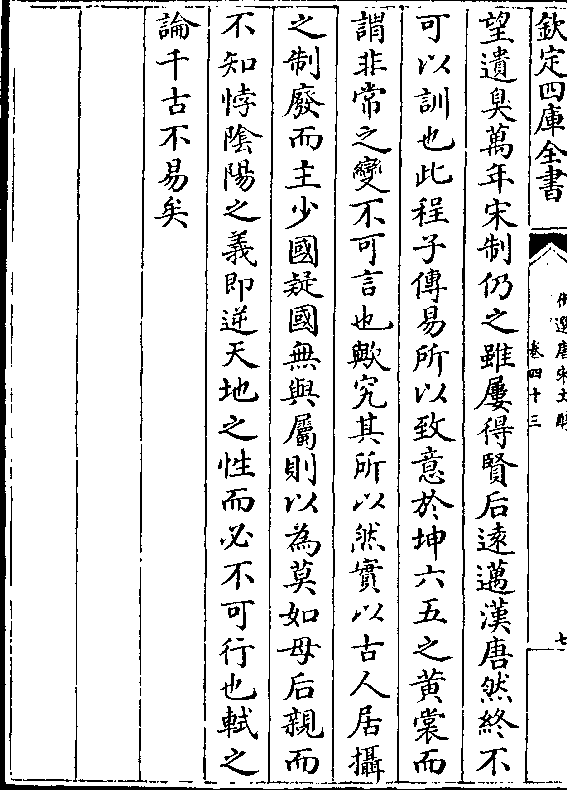 欽定四庫全書
御選唐宋文醇
卷四十三
七
望遺臭萬年宋制仍之雖屢得賢后遠邁漢唐然終不
可以訓也此程子傳易所以致意於坤六五之黄裳而
謂非常之變不可言也歟究其所以然實以古人居攝
之制廢而主少國疑國無與屬則以為莫如母后親而
不知悖陰陽之義即逆天地之性而必不可行也軾之
論千古不易矣